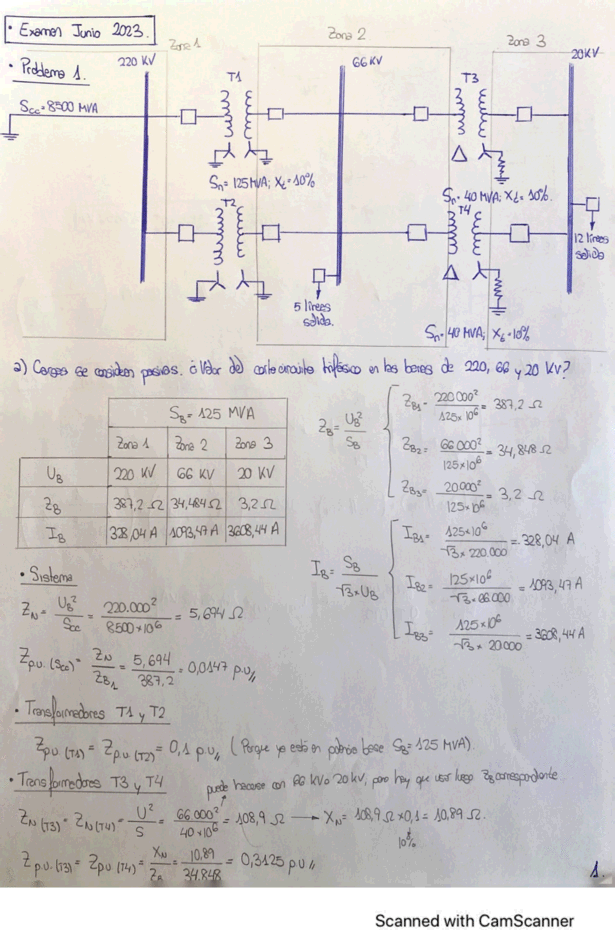 • Examen Junio 2023.
Zona 1
Zona 2
Zona 3
• Problema 1.
220 KV
66 KV
20KV
T1
T3
Scc = 8500 MVA
Sn = 125 MVA; Xt = 10%
Sn = 40 MVA; Xt = 10%.
T2
T4
12 líneas
salida
5 líneas
salida.
Sn = 40 MVA; Xt = 10%
a) Cargas se consideran pasivas. ¿Valor del cortocircuito trifásico en las barras de 220, 66 y 20 KV?
SB = 125 MVA
Zona 1 Zona 2 Zona 3
UB 220 KV 66 KV 20 KV
ZB 387,2 Ω 34,484 Ω 3,2 Ω
IB 328,04 A 1093,47 A 3608,44 A
ZB = UB² / SB
ZB1 = 220000² / 125×10⁶ = 387,2 Ω
ZB2 = 66000² / 125×10⁶ = 34,848 Ω
ZB3 = 20000² / 125×10⁶ = 3,2 Ω
IB = SB / √3×UB
IB1 = 125×10⁶ / √3×220.000 = 328,04 A
IB2 = 125×10⁶ / √3×66.000 = 1093,47 A
IB3 = 125×10⁶ / √3×20000 = 3608,44 A
• Sistema
ZN = UB² / Scc = 220.000² / 8500×10⁶ = 5,694 Ω
Zp.u. (Scc) = ZN / ZB1 = 5,694 / 387,2 = 0,0147 p.u.,,
• Transformadores T1 y T2
Zp.u (T1) = Zp.u (T2) = 0,1 p.u,, (Porque ya está en potencia base SB = 125 MVA).
• Transformadores T3 y T4
puede hacerse con 66 KV o 20 KV, pero hay que usar luego ZB correspondiente.
ZN (T3) = ZN (T4) = U² / S = 66.000² / 40×10⁶ = 108,9 Ω → XN = 108,9 Ω × 0,1 = 10,89 Ω.
10%
Zp.u. (T3) = Zp.u (T4) = XN / ZB = 10,89 / 34.848 = 0,3125 p.u,,
1.
Scanned with CamScanner